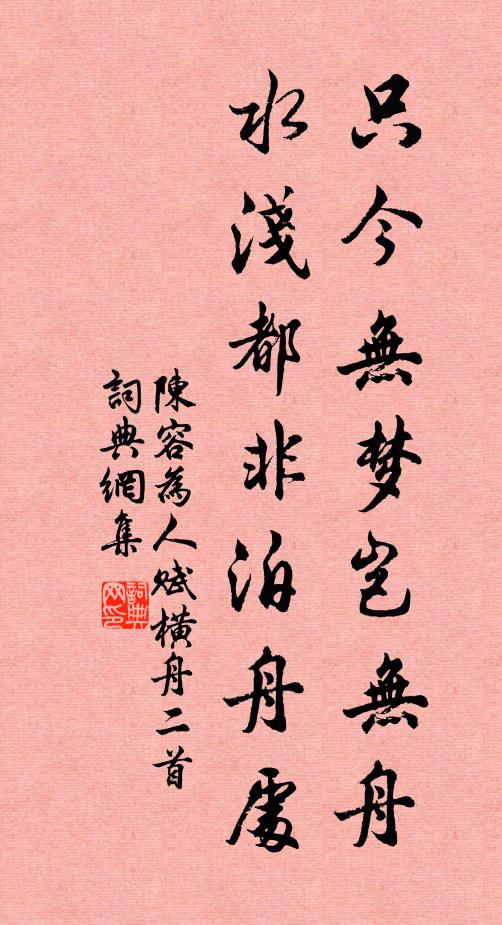 只今無梦岂無舟
水淺都非泊舟處
陳容為人赋橫舟二首
詞典網集
詞典网印